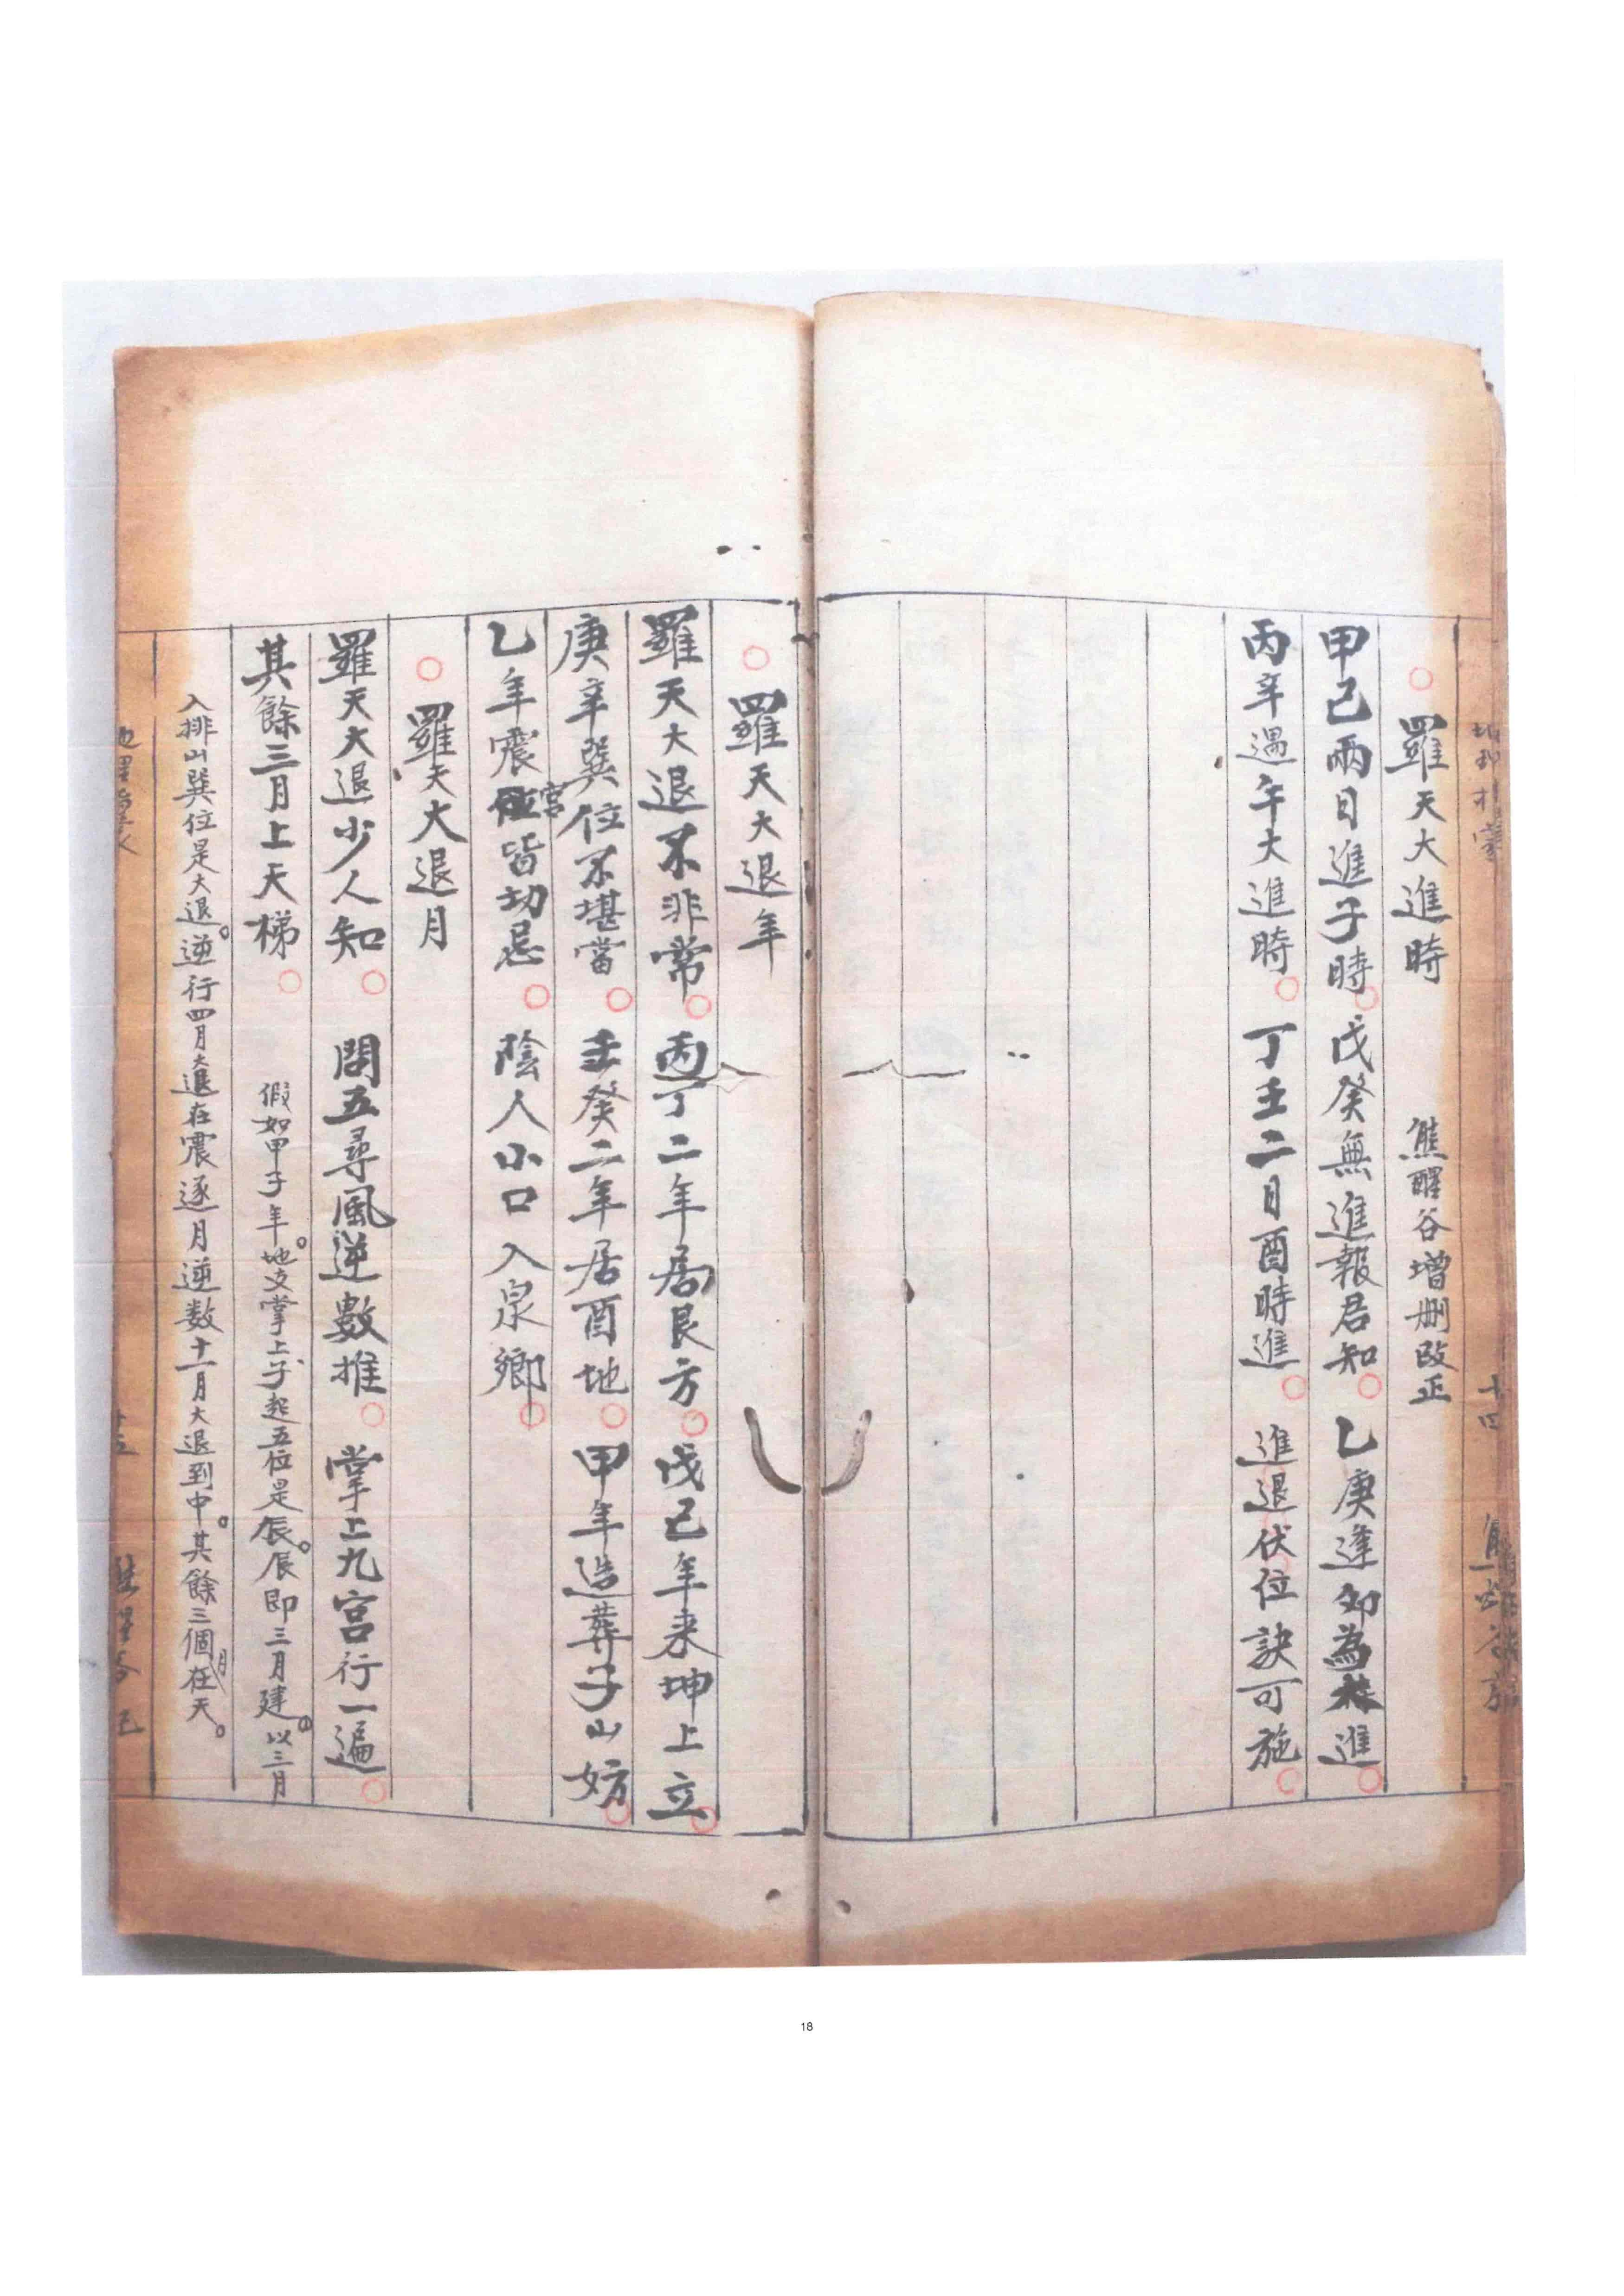 羅天大進時 熊醒谷增刪改正
甲己兩日進子時 戊癸無進報君知 乙庚逢卯為進
丙辛遇午大進時 丁壬二日酉時進 進退伏位訣可施
十四
羅天大退年
羅天大退不非常 丙丁二年居艮方 戊己年来坤上立
庚辛巽位不堪當 壬癸二年居酉地 甲年造葬子山妨
乙年震宮皆切忌 陰人小口入泉鄉
羅天大退月
羅天大退少人知 問五尋風逆數推 掌上九宮行一遍
其餘三月上天梯 假如甲子年。地支掌上子、起五位是辰。辰即三月建。以三月
入排山巽位是大退。逆行四月大退在震逐月逆数十一月大退到中。其餘三個月在天。
18